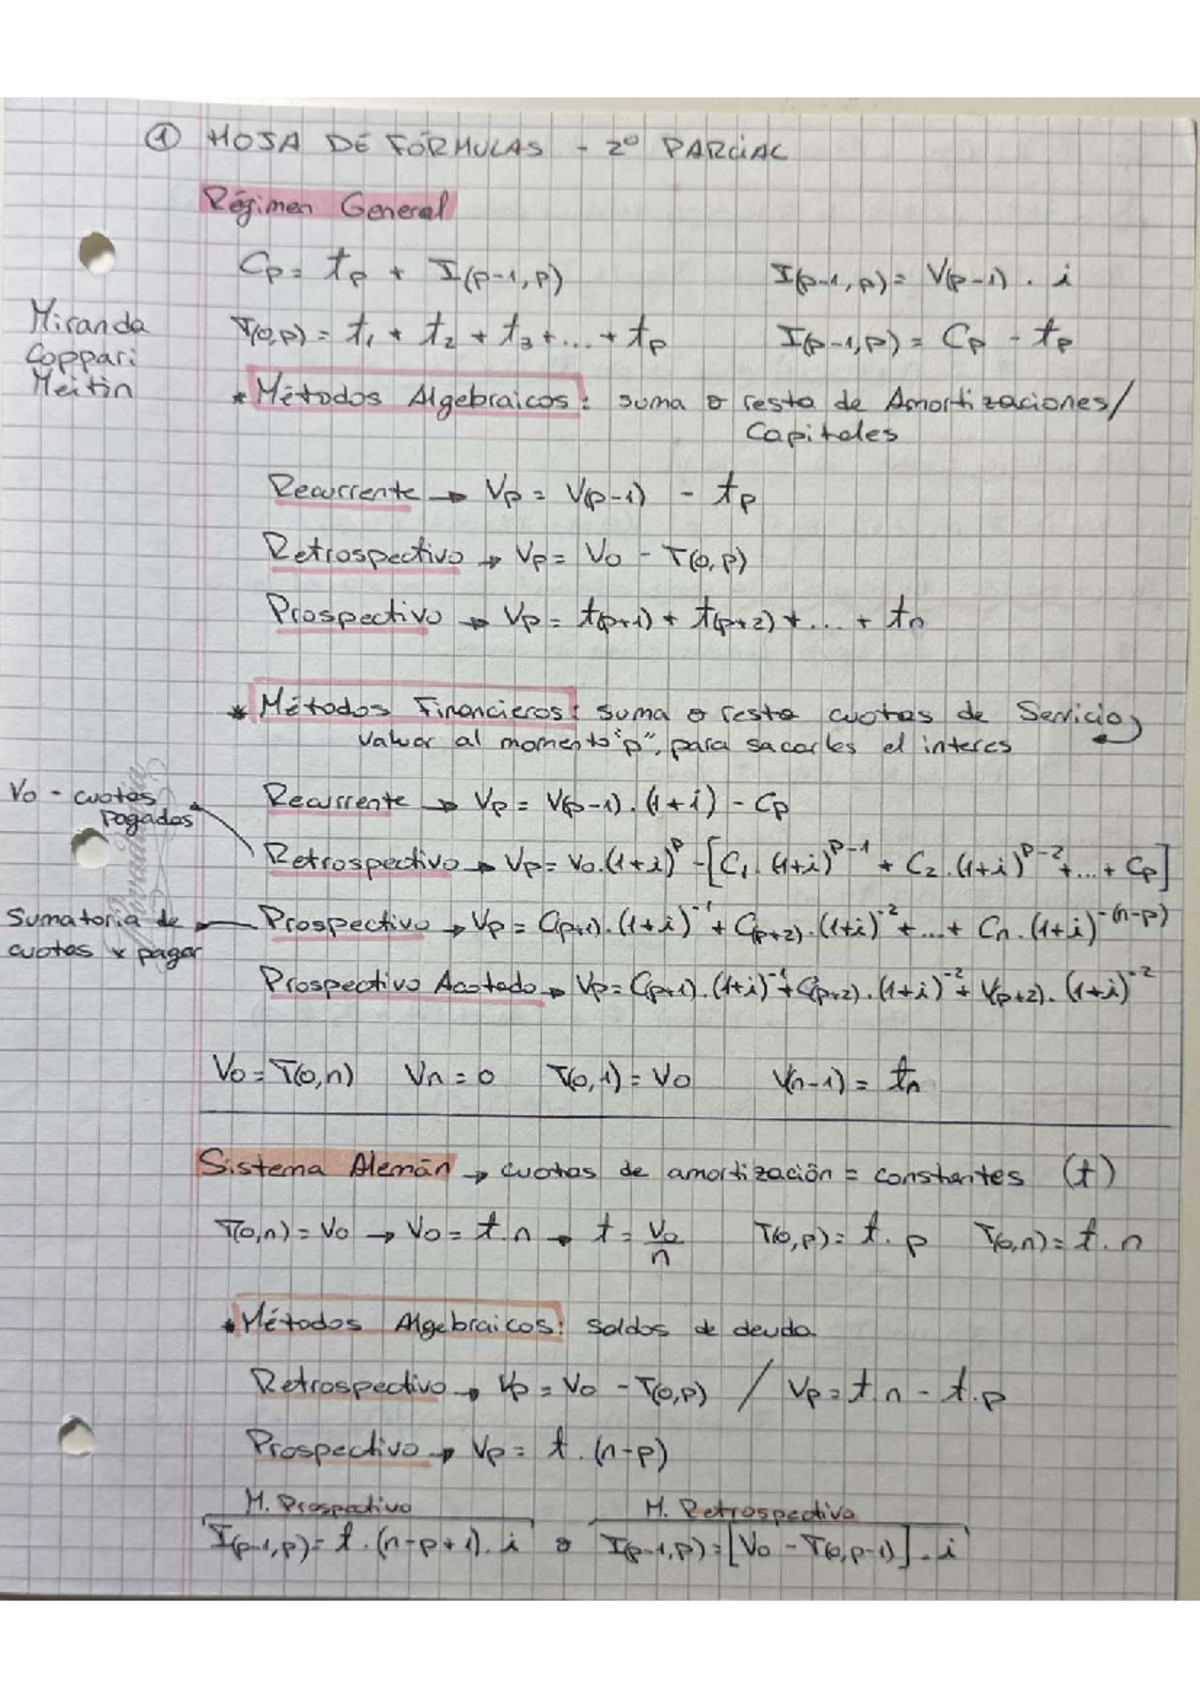 ① HOJA DE FÓRMULAS - 2º PARCIAL
Régimen General
Cp = tp + I(p-1,p)
I(p-1,p) = V(p-1) . i
Miranda
Coppari
Meitin
T(0,p) = t₁ + t₂ + t₃ + ... + tp
I(p-1,p) = Cp - tp
* Métodos Algebraicos: suma o resta de Amortizaciones/
Capitales
Recurrente → Vp = V(p-1) - tp
Retrospectivo → Vp = Vo - T(0,p)
Prospectivo → Vp = t(p+1) + t(p+2) + ... + tn
* Métodos Financieros: suma o resta cuotas de Servicio
valuar al momento "p", para sacarles el interes
Vo - cuotas
pagados
Recurrente → Vp = V(p-1).(1+i) - Cp
Retrospectivo → Vp = Vo.(1+i)^p - [C₁.(1+i)^p-1 + C₂.(1+i)^p-2 + ... + Cp]
Sumatoria de
cuotas x pagar
Prospectivo → Vp = C(p+1).(1+i)^-1 + C(p+2).(1+i)^-2 + ... + Cn.(1+i)^-(n-p)
Prospectivo Acotado → Vp = C(p+1).(1+i)^-1 + C(p+2).(1+i)^-2 + V(p+2).(1+i)^-2
Vo = T(0,n) Vn = 0 T(0,1) = Vo V(n-1) = tn
Sistema Alemán → cuotas de amortización = constantes (t)
T(0,n) = Vo → Vo = t.n → t = Vo/n T(0,p) = t.p T(0,n) = t.n
* Métodos Algebraicos: saldos de deuda
Retrospectivo → Vp = Vo - T(0,p) / Vp = t.n - t.p
Prospectivo → Vp = t.(n-p)
M. Prospectivo
M. Retrospectivo
I(p-1,p) = t.(n-p+1).i o I(p-1,p) = [Vo - T(0,p-1)].i